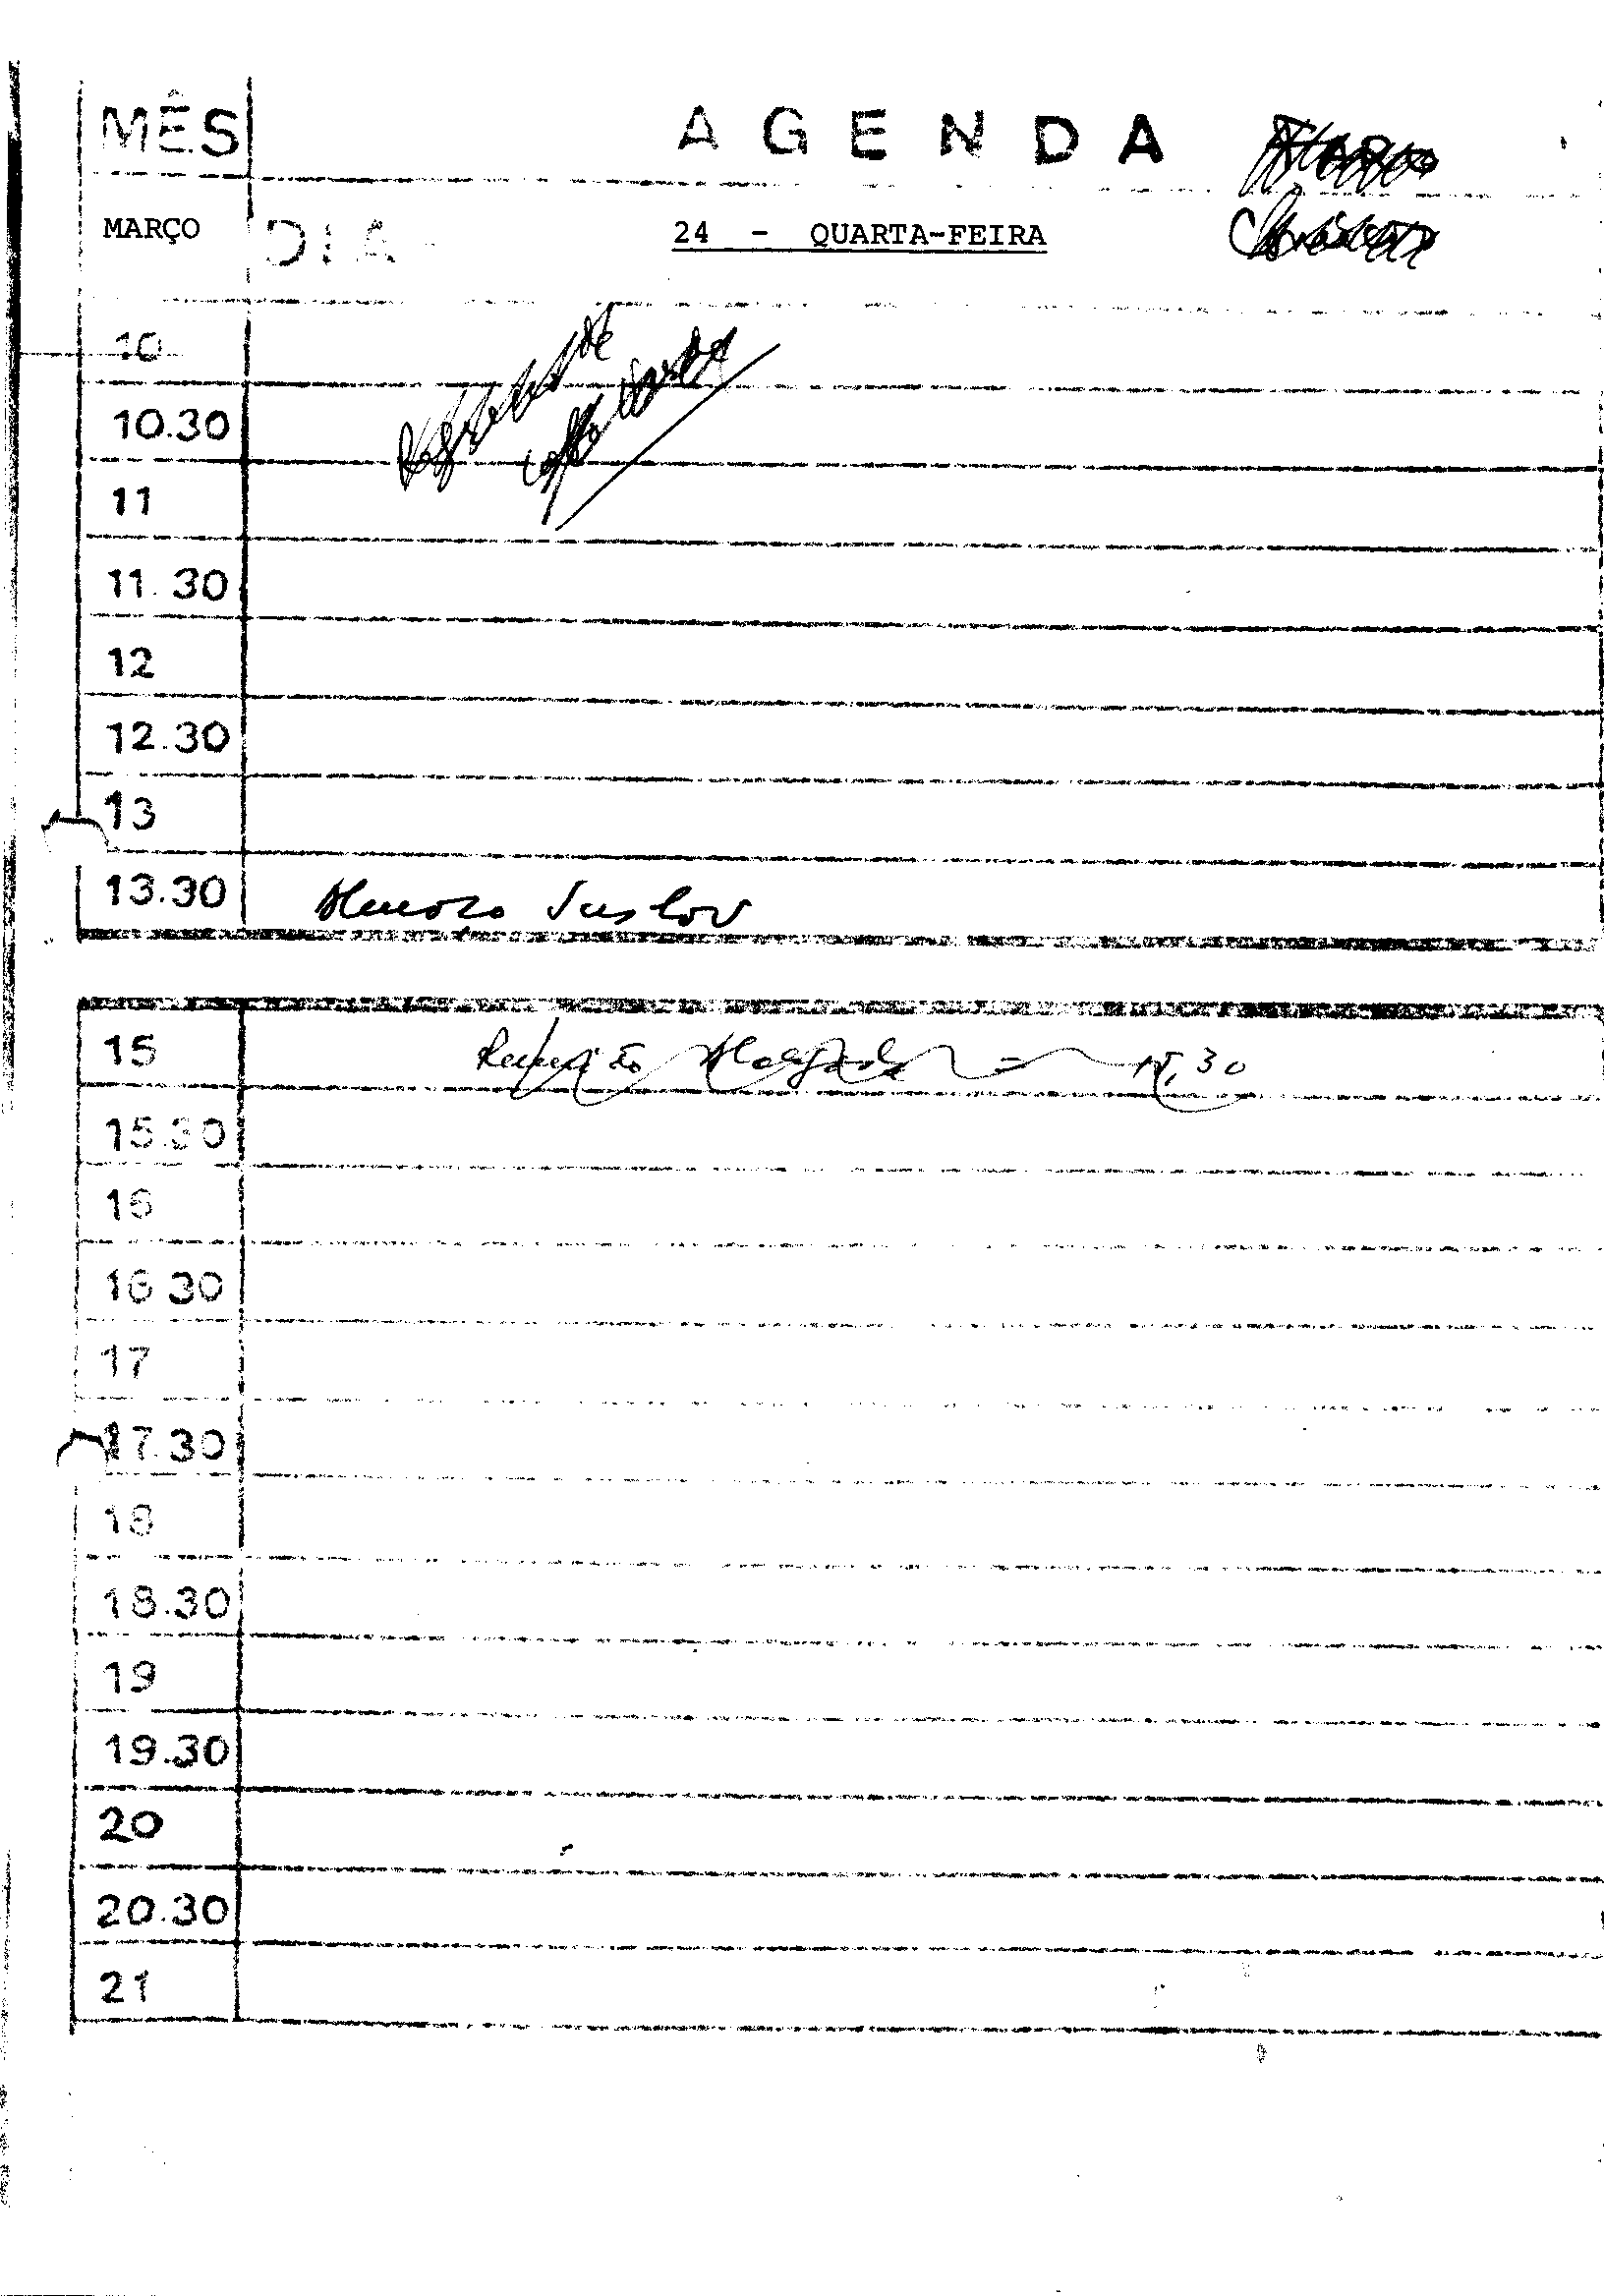 MÊS AGENDA
MARÇO DIA 24 - QUARTA-FEIRA
10
10.30
11
11.30
12
12.30
13
13.30 Almoço
15 Reunião 15,30
15.30
16
16 30
17
17.30
18
18.30
19
19.30
20
20.30
21